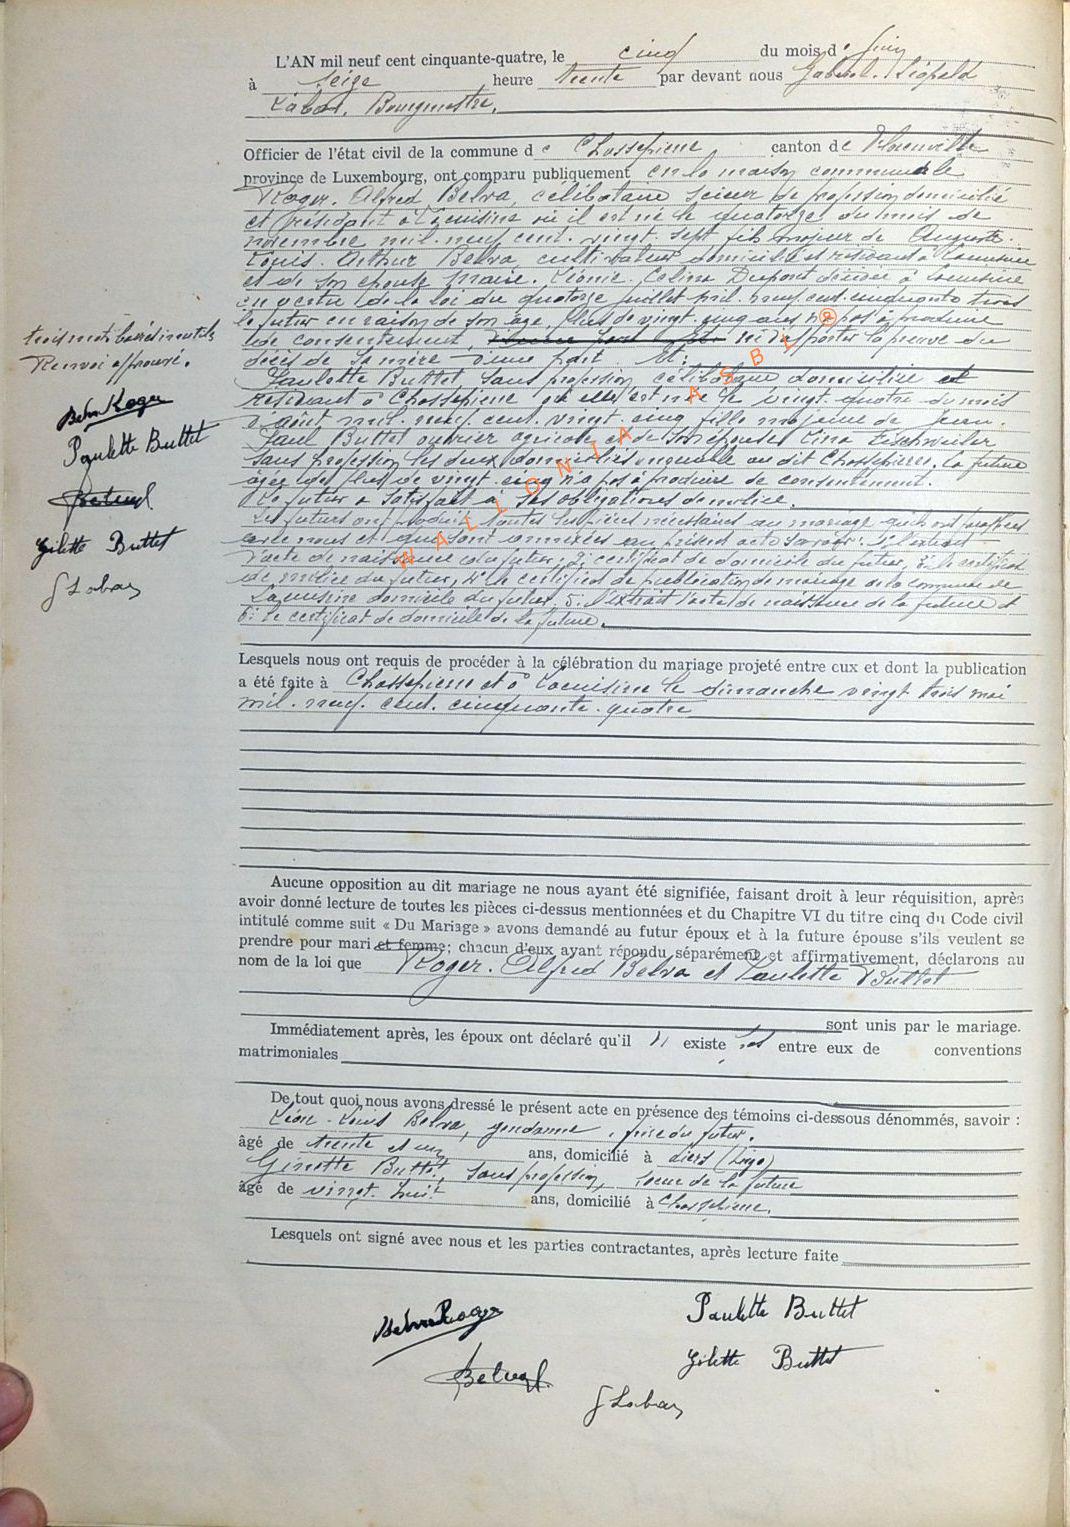 L'AN mil neuf cent cinquante-quatre, le cinq du mois de juin
à seize heure trente par devant nous Gabriel. Léopold
Labar. Bourgmestre.
Officier de l'état civil de la commune de Chassepierre canton de Florenville
province de Luxembourg, ont comparu publiquement en la maison communale
Roger. Alfred Belva, célibataire scieur de profession domicilié
et résidant à Lacuisine où il est né le quatorze du mois de
novembre mil. neuf cent. vingt sept fils majeur de Auguste.
Louis. Arthur Belva cultivateur domicilié et résidant à Lacuisine
et de son épouse Marie. Léonie. Celina Dupont décédée à Lacuisine
en vertu de la loi du quatorze juillet mil. neuf cent. cinquante trois
le futur en raison de son âge plus de vingt. cinq ans n'a pas à produire
de consentement, ni à apporter la preuve du
décès de sa mère d'une part Et:
Paulette Buttet sans profession célibataire domiciliée et
résidant à Chassepierre où elle est née le vingt. quatre du mois
d'août mil. neuf. cent. vingt. cinq fille majeure de Jean.
Paul Buttet ouvrier agricole et de son épouse Lina Eischweiler
sans profession les deux domiciliés ensemble au dit Chassepierre. La future
âgée de plus de vingt cinq n'a pas à produire de consentement.
Le futur a satisfait à ses obligations de milice.
Les futurs ont produit toutes les pièces nécessaires au mariage qu'ils ont
et qui sont annexées au présent acte savoir: 1° l'extrait
d'acte de naissance du futur, 2: certificat de domicile du futur, 3: le certificat
de milice du futur, 4° le certificat de publication de mariage de la commune de
Lacuisine domicile du futur, 5: l'extrait d'acte de naissance de la future et
6: le certificat de domicile de la future.
trois mots barrés inutiles
Renvoi approuvé.
Belva Roger
Paulette Buttet
Gilette Buttet
G Labar
WALLONIA ASBL ®
Lesquels nous ont requis de procéder à la célébration du mariage projeté entre eux et dont la publication
a été faite à Chassepierre et à Lacuisine le dimanche vingt trois mai
mil. neuf. cent. cinquante. quatre
Aucune opposition au dit mariage ne nous ayant été signifiée, faisant droit à leur réquisition, après
avoir donné lecture de toutes les pièces ci-dessus mentionnées et du Chapitre VI du titre cinq du Code civil
intitulé comme suit « Du Mariage » avons demandé au futur époux et à la future épouse s'ils veulent se
prendre pour mari et femme; chacun d'eux ayant répondu séparément et affirmativement, déclarons au
nom de la loi que Roger. Alfred Belva et Paulette Buttet
sont unis par le mariage.
Immédiatement après, les époux ont déclaré qu'il n'existe pas entre eux de conventions
matrimoniales
De tout quoi nous avons dressé le présent acte en présence des témoins ci-dessous dénommés, savoir :
Léon. Louis Belva, gendarme, frère du futur.
âgé de trente et un ans, domicilié à
Ginette Buttet, sans profession, soeur de la future
âgé de vingt. huit ans, domicilié à Chassepierre.
Lesquels ont signé avec nous et les parties contractantes, après lecture faite
Belva Roger
Paulette Buttet
Gilette Buttet
G Labar